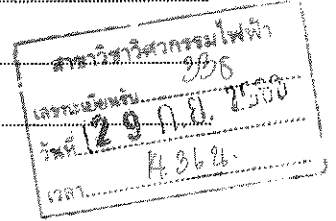 สาขาวิชาวิศวกรรมไฟฟ้า
เลขทะเบียนรับ 336
วันที่ 29 ก.ย. 2560
เวลา